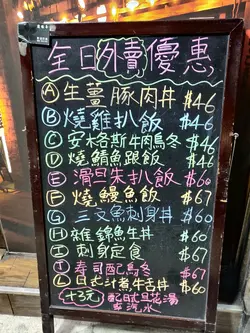 全日外賣優惠
Ⓐ 生薑豚肉丼 $46
Ⓑ 燒雞扒飯 $46
Ⓒ 安格斯牛肉烏冬 $46
Ⓓ 燒鯖魚跟飯 $46
Ⓔ 滑旦朱扒飯 $60
Ⓕ 燒鰻魚飯 $67
Ⓖ 三文魚刺身丼 $60
Ⓗ 雜錦魚生丼 $60
Ⓘ 刺身定食 $67
Ⓙ 壽司配烏冬 $67
Ⓛ 日式汁煮牛舌丼 $60
+3元 配日式旦花湯
或汽水